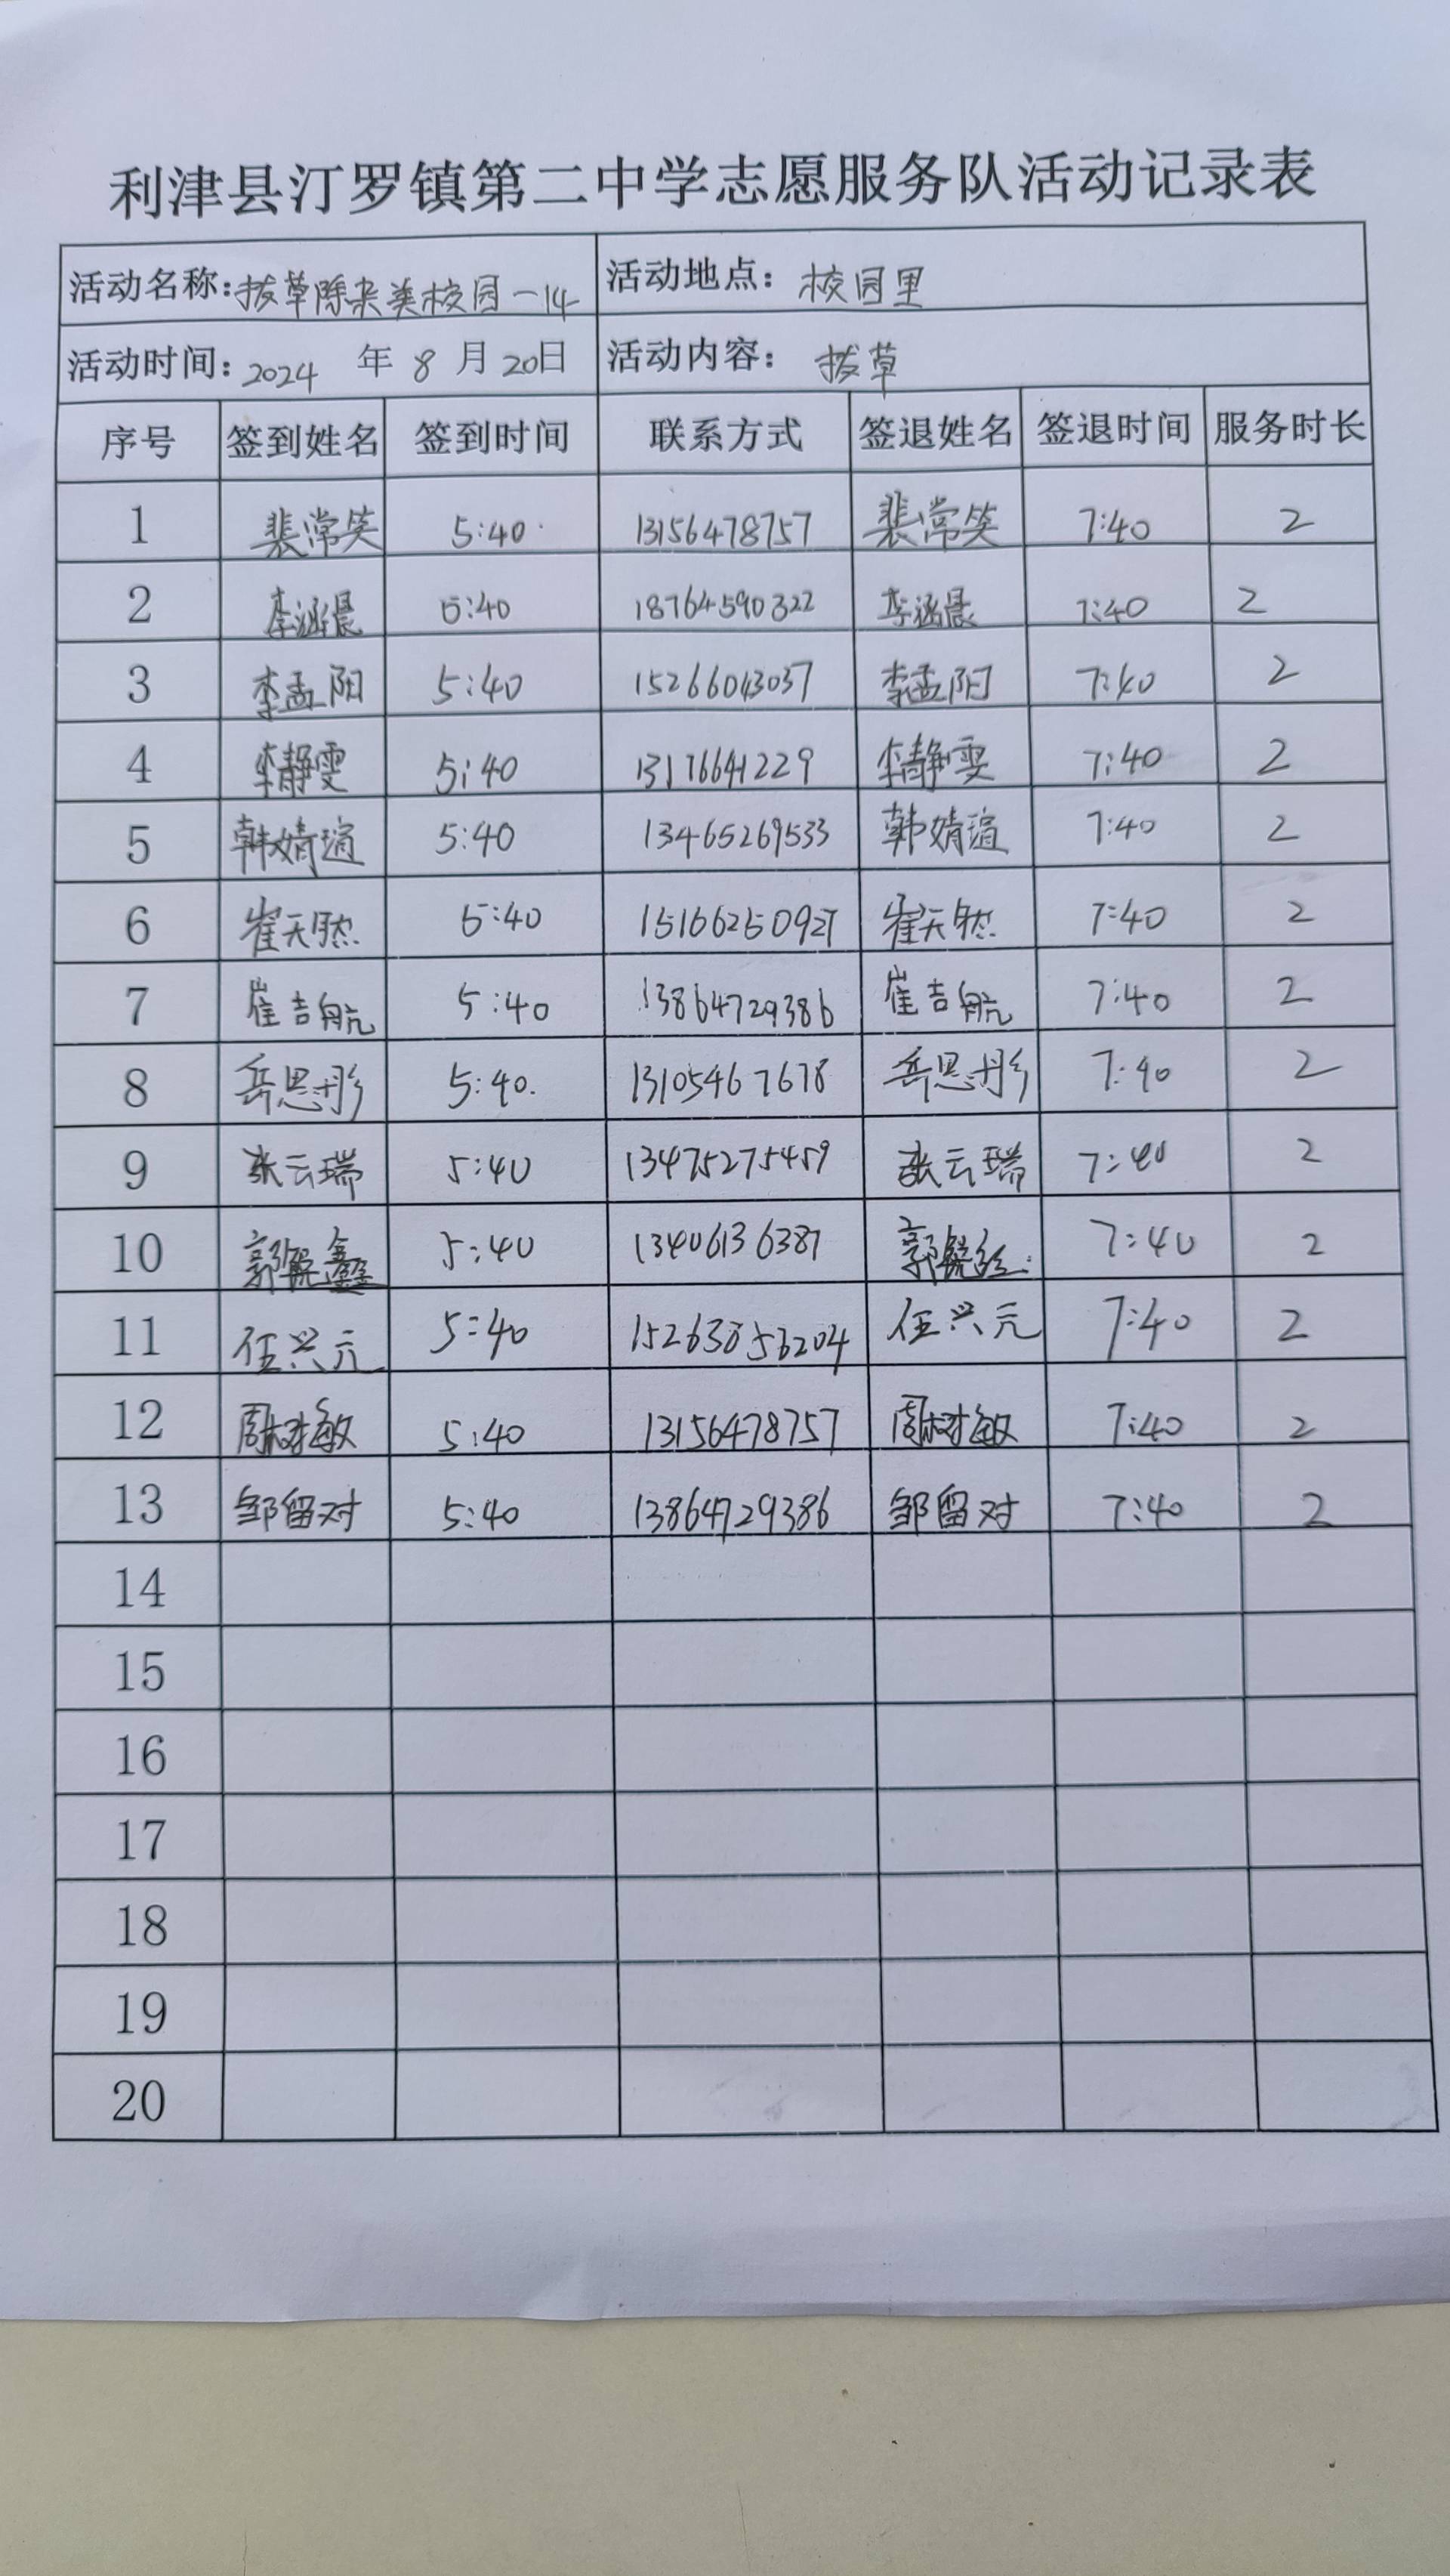 利津县汀罗镇第二中学志愿服务队活动记录表
活动名称:拔草除杂美校园一14 活动地点: 校园里
活动时间:2024 年 8 月 20日 活动内容: 拔草
序号 签到姓名 签到时间 联系方式 签退姓名 签退时间 服务时长
1 裴常笑 5:40 13156478757 裴常笑 7:40 2
2 李涵晨 5:40 18764590322 李涵晨 7:40 2
3 李孟阳 5:40 15266043037 李孟阳 7:40 2
4 李静雯 5:40 13176641229 李静雯 7:40 2
5 韩婧 5:40 13465269533 韩婧 7:40 2
6 崔天然 5:40 15166250927 崔天然 7:40 2
7 崔吉航 5:40 13864729386 崔吉航 7:40 2
8 岳思彤 5:40. 13105467678 岳思彤 7:40 2
9 张云瑞 5:40 13475275459 张云瑞 7:40 2
10 郭 鑫 5:40 13406136387 郭 7:40 2
11 任兴元 5:40 15263856204 任兴元 7:40 2
12 周树敏 5:40 13156478757 周树敏 7:40 2
13 邹留对 5:40 13864729386 邹留对 7:40 2
14
15
16
17
18
19
20